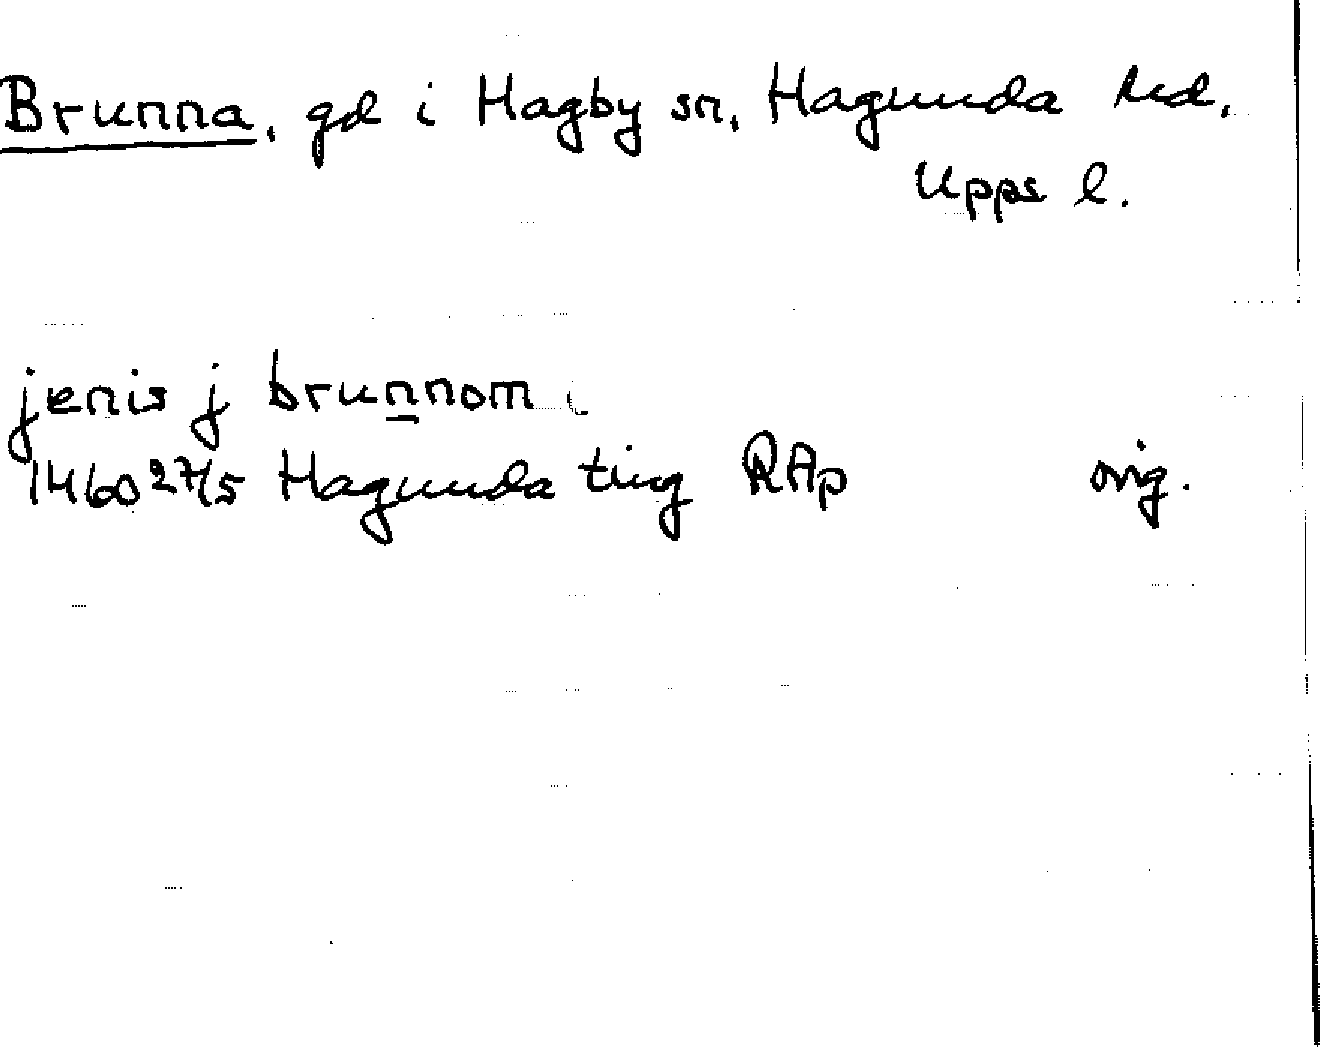 Brunna, gd i Hagby sn, Hagunda hd,
Upps l.
jenis j brunnom
1460 27/5 Hagunda ting RAp orig.